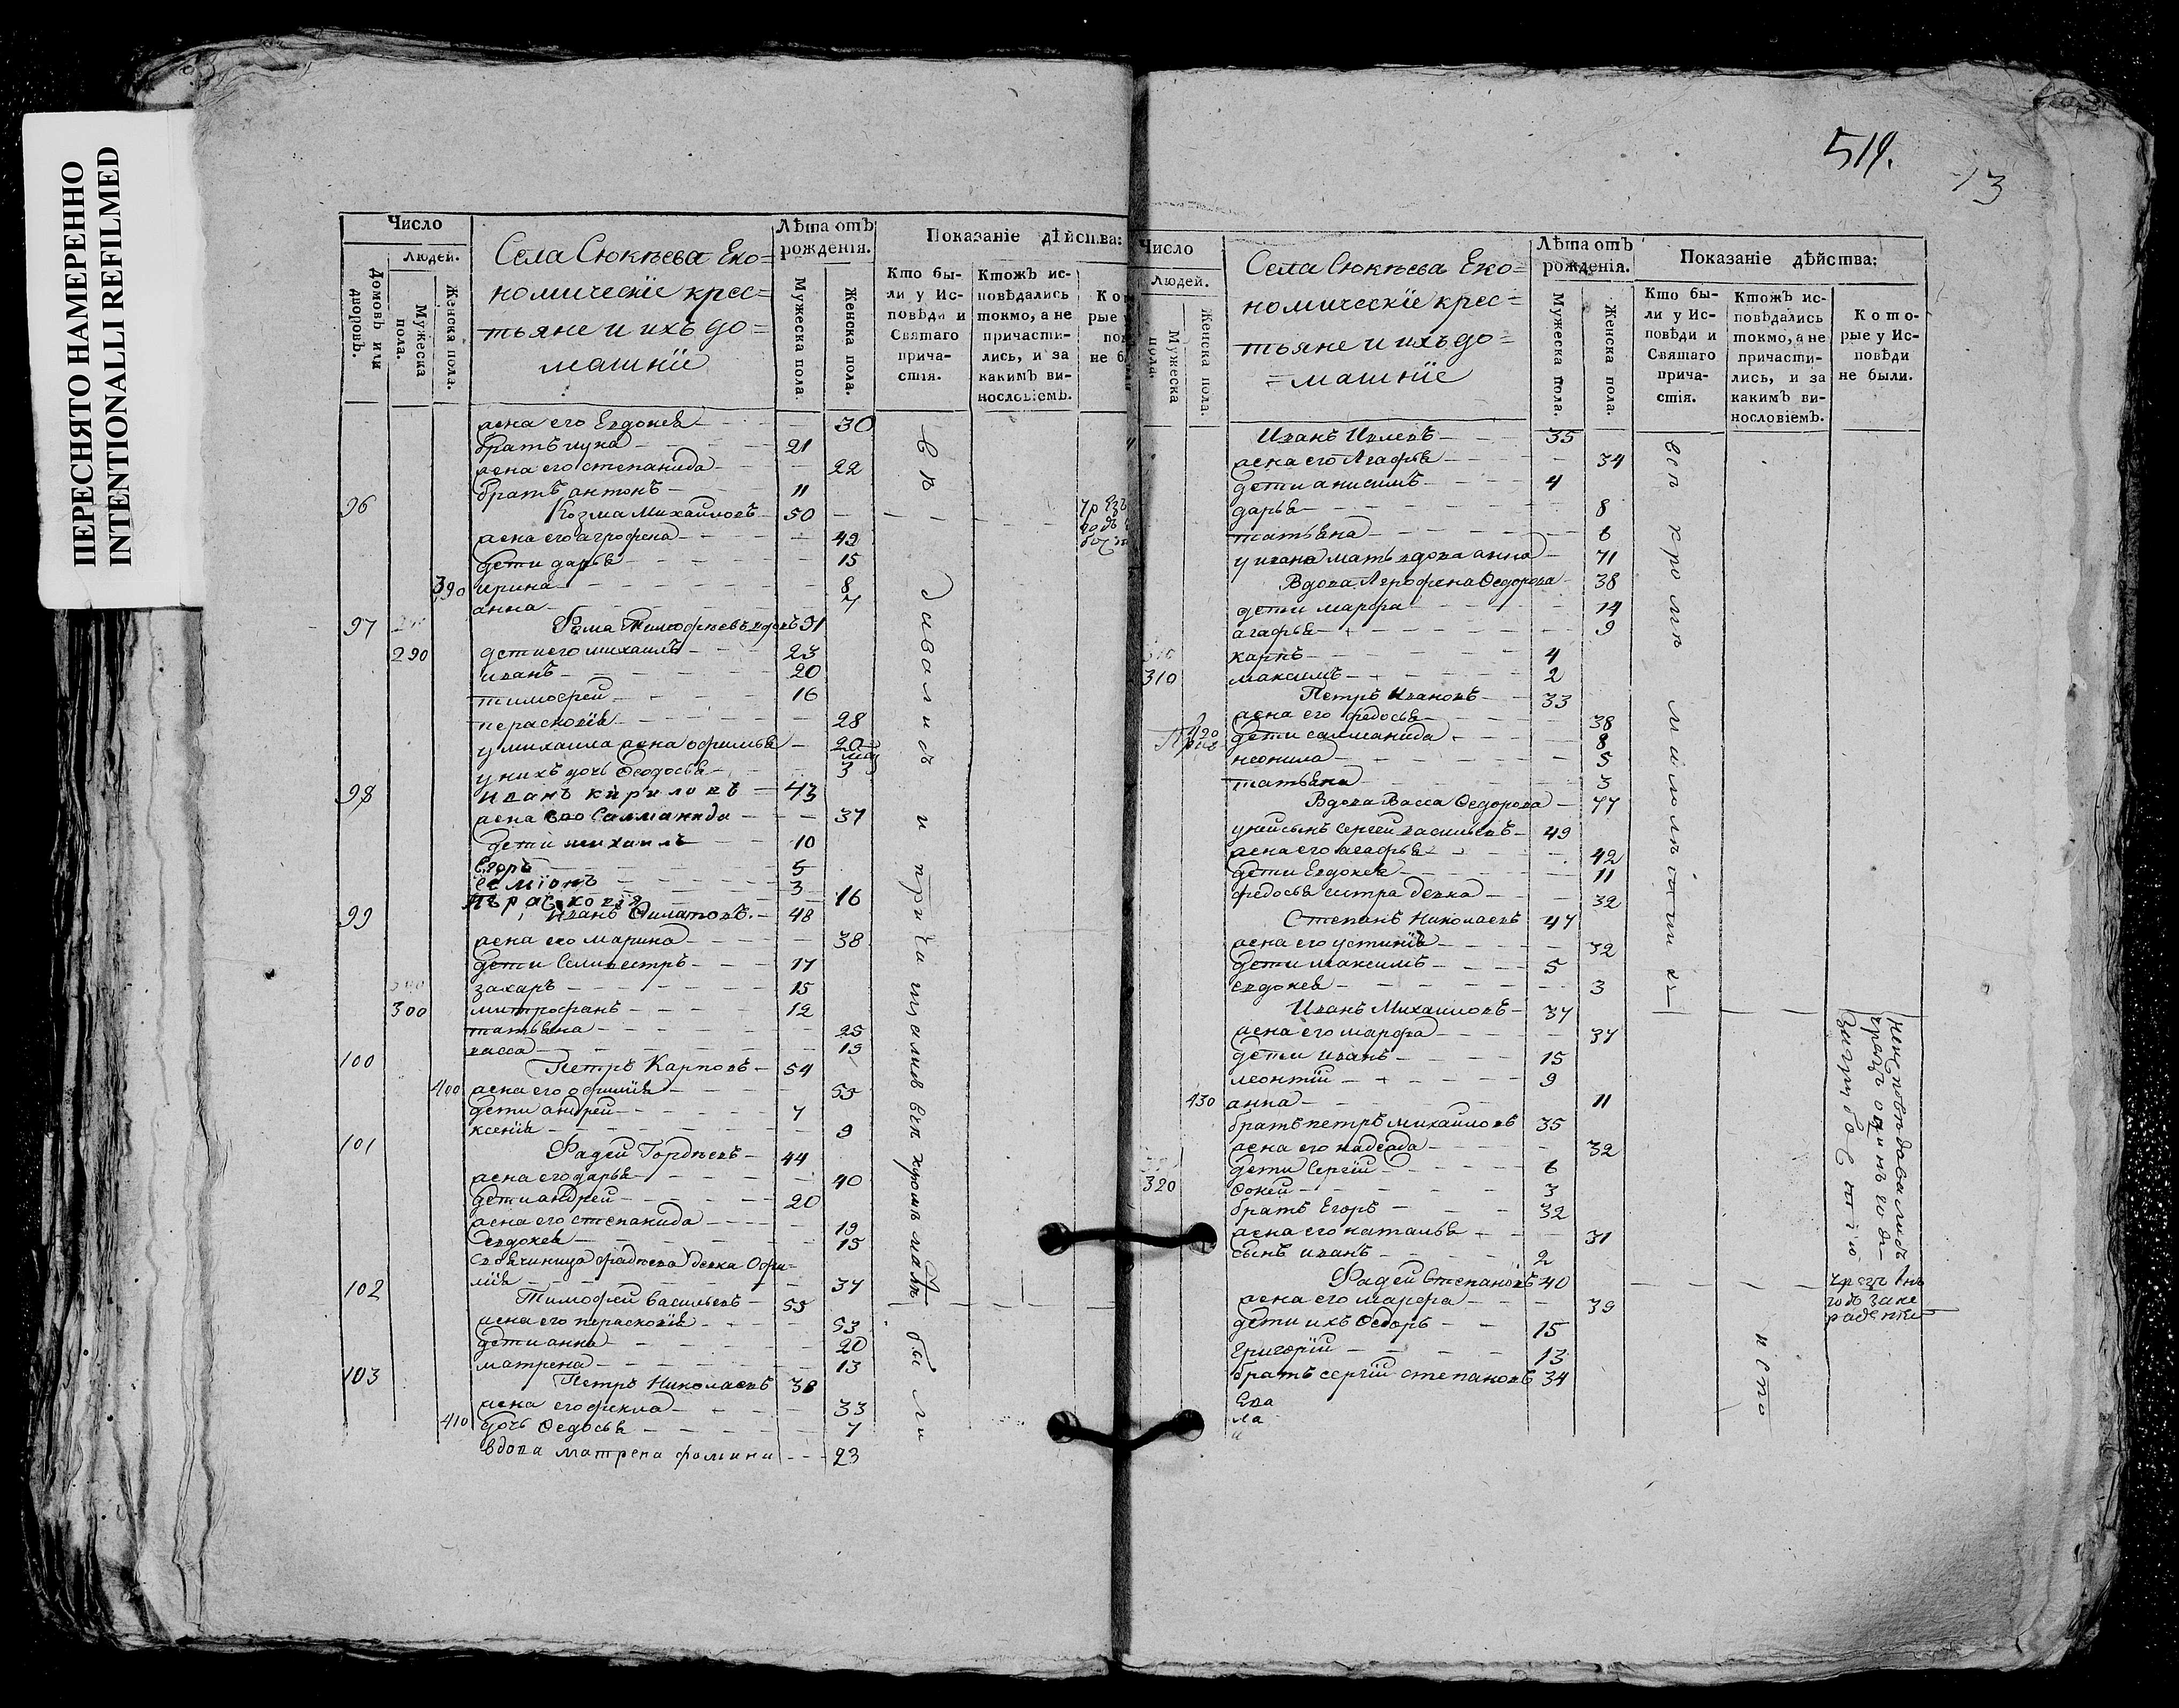 ПЕРЕСНЯТО НАМЕРЕННО
INTENTIONALLI REFILMED
519.
13
Число
Людей.
Домовъ или дворовъ.
Мужеска пола.
Женска пола.
Села Сюкѣева Еко=
номическіе крес=
тьяне и ихъ до=
машніе
Лѣта отъ рожденія.
Мужеска пола.
Женска пола.
Показаніе дѣйства:
Кто бы-
ли у Ис-
повѣди и
Святаго
прича-
стія.
Ктожъ ис-
повѣдались
токмо, а не
причасти-
лись, и за
какимъ ви-
нословіемъ.
жена его Евдокея 30
братъ лука 21
жена его степанида 22
братъ антонъ 11
96 Козма Михаиловъ 50
жена его агрофена 49
дети дарья 15
390 ирина 8
анна 7
97 Фома Тимофѣевъ вдовъ 51
290 дети его михаилъ 23
иванъ 20
тимофей 16
перасковія 28
у михаила жена офимья 20
у нихъ дочь Феодосья 3
98 иванъ кириловъ 43
жена его Саламанида 37
дети михаилъ 10
Егоръ 5
семіонъ 3
Перасковія 16
99 Иванъ Филатовъ 48
жена его марина 38
дети Селивестръ 17
захаръ 15
300 митрофанъ 12
татьяна 25
васса 19
100 Петръ Карповъ 54
400 жена его офимія 55
дети андрей 7
ксенія 9
101 Фадей Гордѣевъ 44
жена его дарья 40
дети андрей 20
жена его степанида 19
евдокея 15
Своячиница фадѣева девка Офи-
мія 37
102 Тимофей васильевъ 55
жена его перасковія 53
дети анна 20
матрена 13
103 Петръ Николаевъ 38
жена его фекла 33
410 дочь Федосья 7
вдова матрена фомина 23
Число
Людей.
Мужеска пола.
Женска пола.
Села Сюкѣева Еко=
номическіе крес=
тьяне и ихъ до=
=машніе
Лѣта отъ рожденія.
Мужеска пола.
Женска пола.
Показаніе дѣйства:
Кто бы-
ли у Ис-
повѣди и
Святаго
прича-
стія.
Ктожъ ис-
повѣдались
токмо, а не
причасти-
лись, и за
какимъ ви-
нословіемъ.
Кото-
рые у Ис-
повѣди
не были.
Иванъ 35
жена его Агафья 34
дети анисимъ 4
дарья 8
татьяна 6
у ивана мать вдова анна 71
Вдова Агрофена Федорова 38
дети марфа 14
агафья 9
карпъ 4
310 максимъ 2
Петръ Ивановъ 33
жена его федосья 38
дети саламанида 8
неонила 5
татьяна 3
Вдова Васса Федорова 77
у ней сынъ Сергей васильевъ 49
жена его агафья 42
дети Евдокея 11
федосья сестра девка 32
Степанъ Николаевъ 47
жена его устинія 32
дети максимъ 5
евдокея 3
Иванъ Михаиловъ 37
жена его марфа 37
дети иванъ 15
леонтій 9
430 анна 11
братъ петръ михаиловъ 35
жена его надежда 32
дети Сергій 6
320 Фокей 3
братъ Егоръ 32
жена его наталья 31
сынъ иванъ 2
Фадей Степановъ 40
жена его марфа 39
дети ихъ Федоръ 15
Григорій 13
братъ сергій степановъ 34